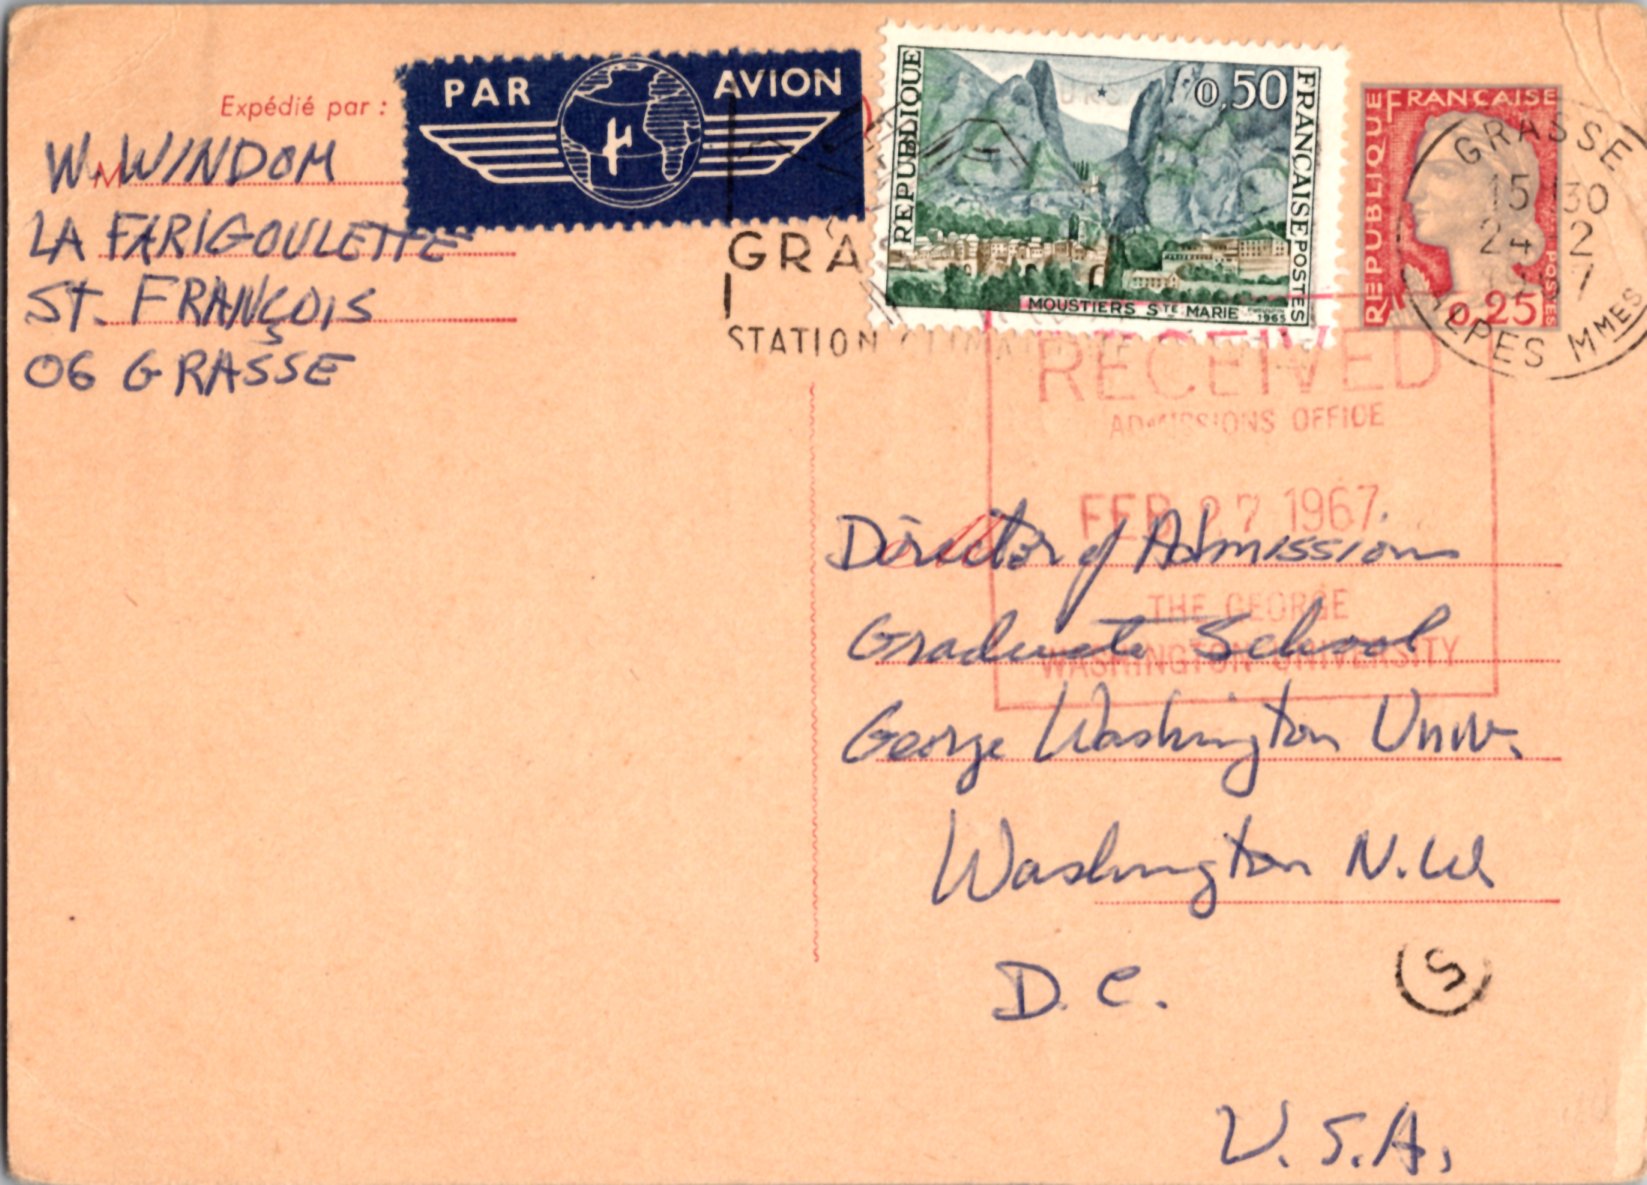 Expédié par :
W. WINDOM
LA FARIGOULETTE
ST. FRANÇOIS
06 GRASSE
PAR AVION
RÉPUBLIQUE FRANÇAISE
0,50
POSTES
MOUSTIERS STE MARIE
1965
RÉPUBLIQUE FRANÇAISE
0,25
POSTES
GRASSE
15 30
24 2
ALPES MMES
GRA
STATION
RECEIVED
ADMISSIONS OFFICE
FEB 27 1967
THE GEORGE
WASHINGTON UNIVERSITY
Director of Admissions
Graduate School
George Washington Univ.
Washington N.W.
D.C.
U.S.A.
S